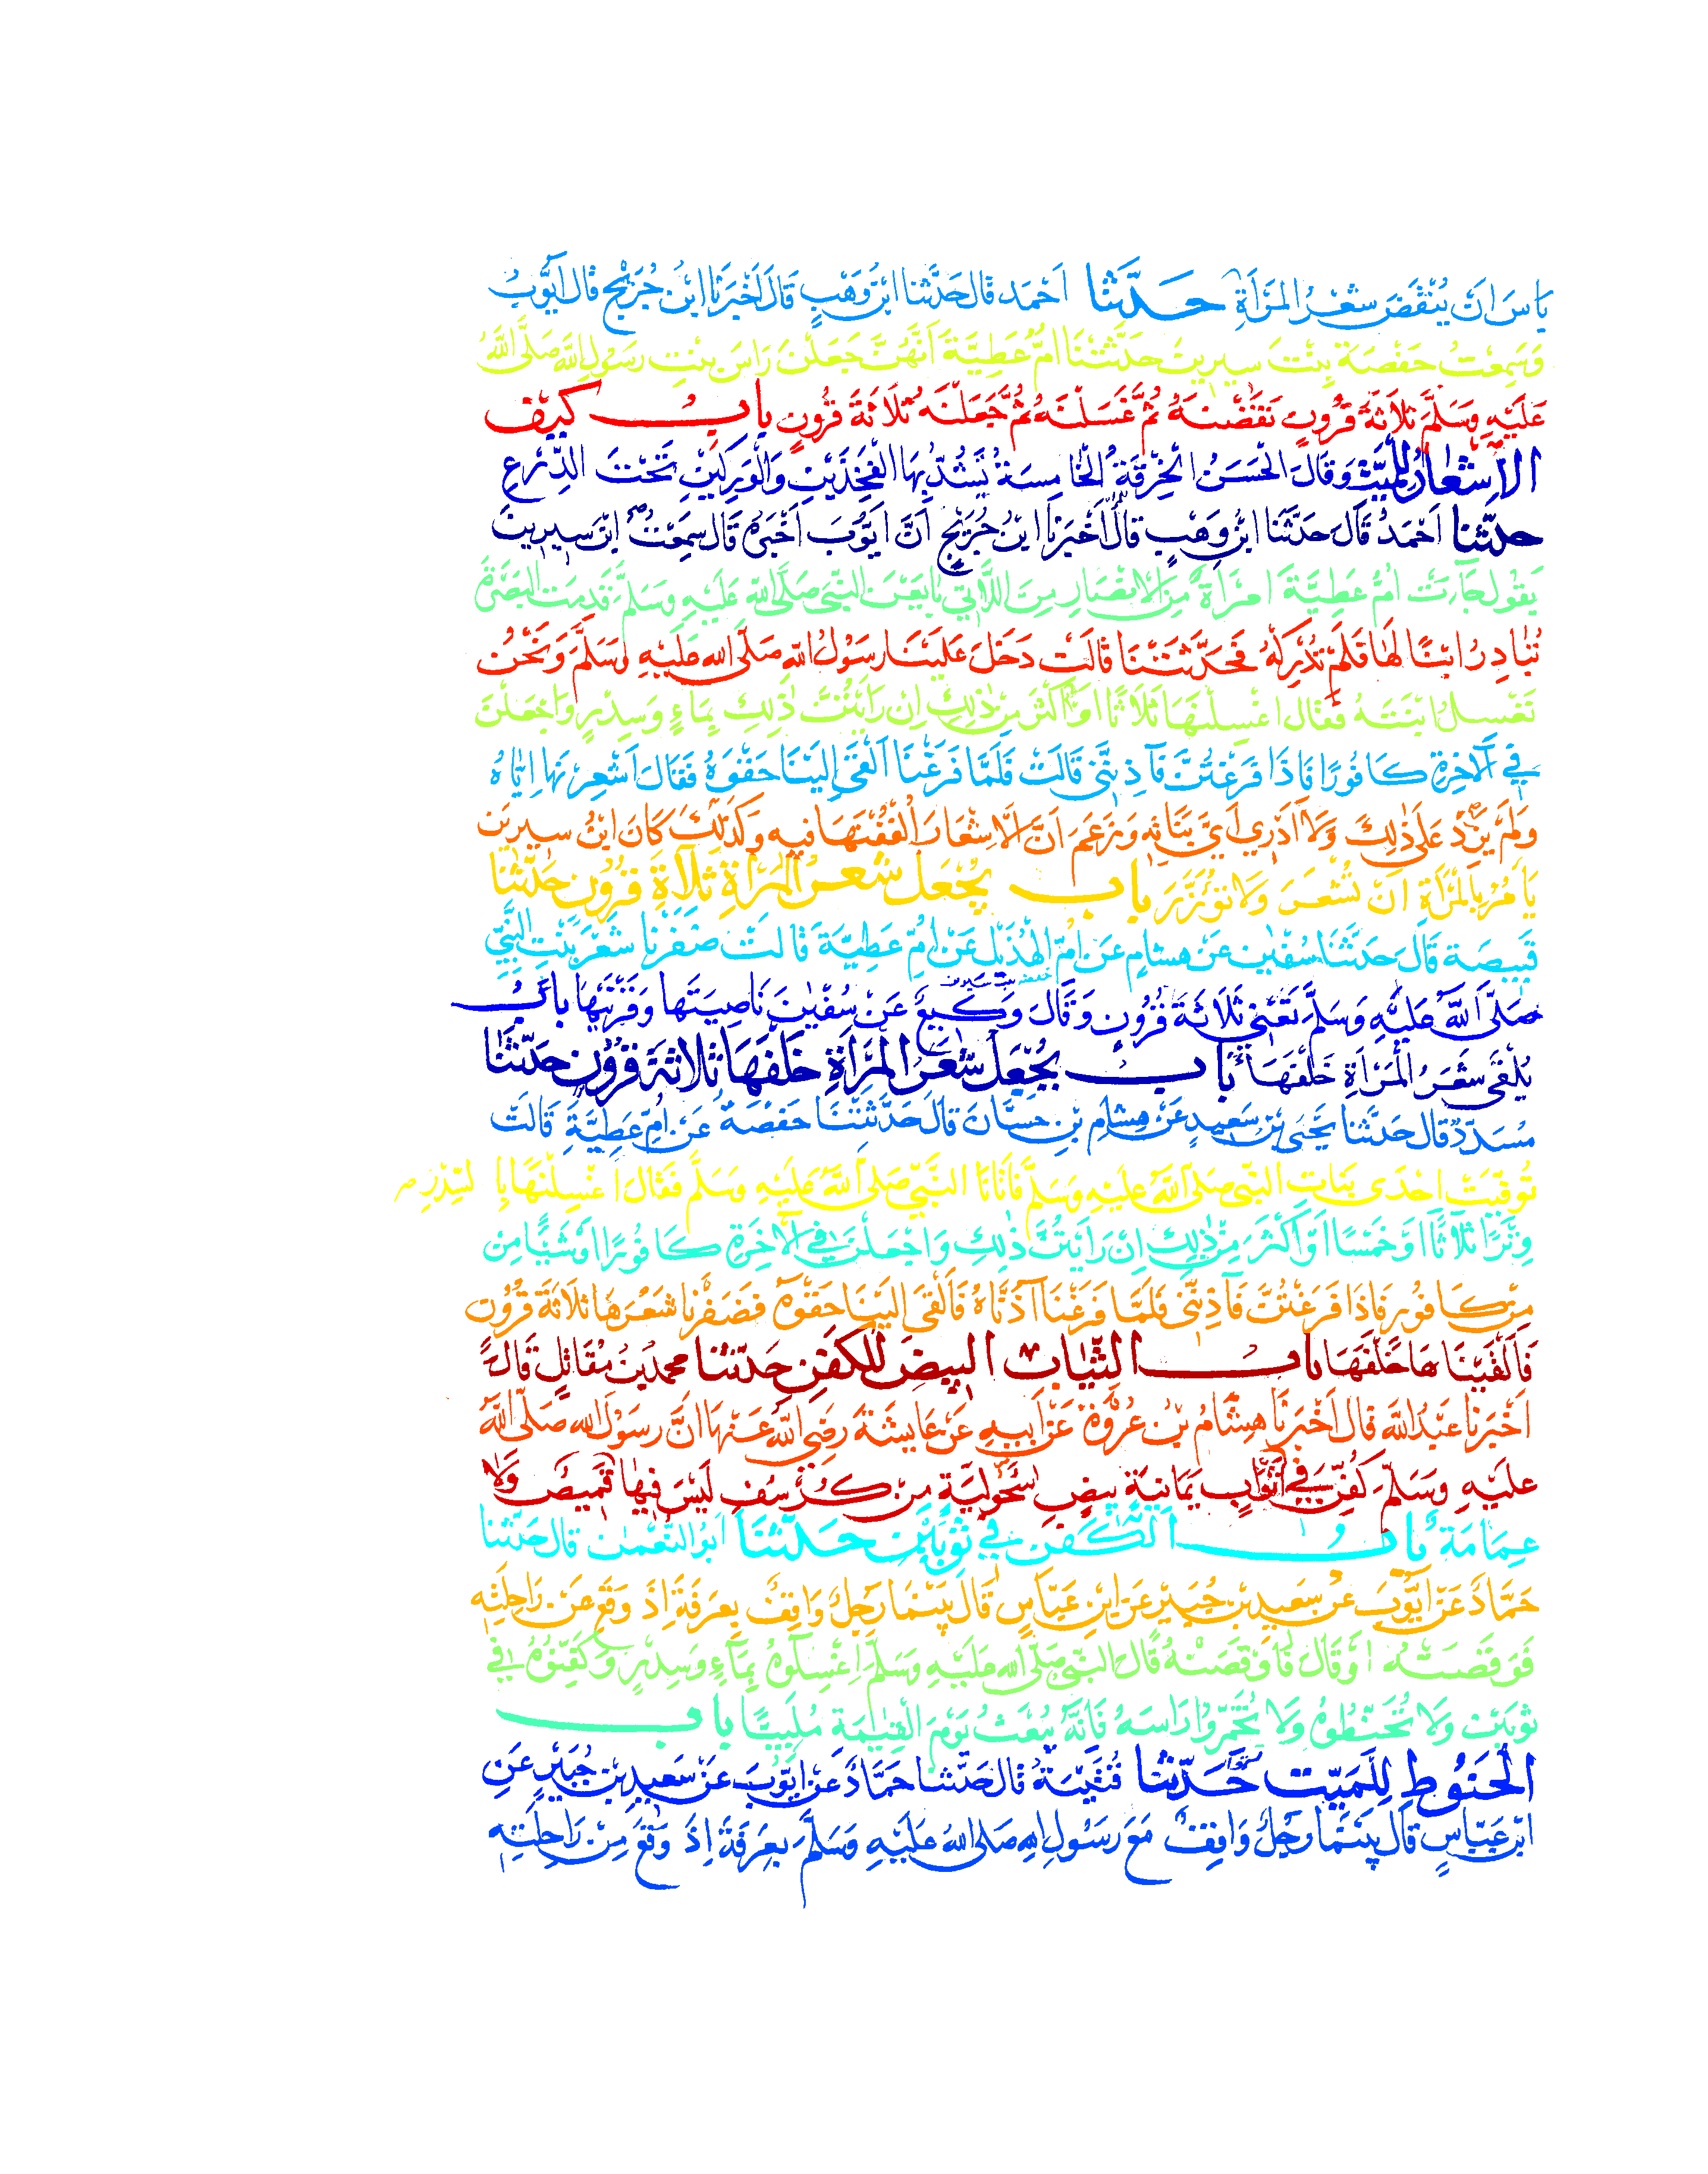 بَاسَ اَنْ يُنْقَضَ شَعْرُ المَرْأَةِ حَدَّثَنا اَحْمَد قال حَدَّثنا ابْن وَهْبٍ قَالَ اَخْبَرَنا ابْنُ جُرَيْجٍ قال اَيُّوبُ
وَسَمِعْتُ حَفْصَةَ بِنْتَ سِيرِينَ حَدَّثَتْنَا اُمُّ عَطِيَّةَ اَنَّهُنَّ جَعَلْنَ رَاسَ بِنْتِ رَسُولِ اللّٰهِ صَلَّى اللّٰهُ
عَلَيْهِ وَسَلَّمَ ثَلَاثَةَ قُرُونٍ نَقَضْنَهُ ثُمَّ غَسَلْنَهُ ثُمَّ جَعَلْنَهُ ثَلَاثَةَ قُرُونٍ بابُ كَيْفَ
الاِشْعَارُ لِلْمَيِّتِ وَقَالَ الحَسَنُ الخِرْقَةُ الخَامِسَةُ يُشَدُّ بِهَا الفَخِذَيْنِ وَالوَرِكَيْنِ تَحْتَ الدِّرْعِ
حدّثنا اَحْمَدُ قَالَ حَدَّثَنَا ابْنُ وَهْبٍ قالَ اَخْبَرَنا ابْنُ جُرَيْجٍ اَنَّ اَيُّوبَ اَخْبَرَهُ قَالَ سَمِعْتُ ابْنَ سِيرِينَ
يَقُولُ جَاءَتْ اُمُّ عَطِيَّةَ امْرَأَةٌ مِنَ الاَنْصَارِ مِنَ اللَّاتِي بَايَعْنَ النَّبِيَّ صَلَّى اللّٰه عَلَيْهِ وَسَلَّمَ قَدِمَتِ البَصْرَةَ
تُبَادِرُ ابْنًا لَهَا فَلَمْ تُدْرِكْهُ فَحَدَّثَتْنَا قَالَتْ دَخَلَ عَلَيْنَا رَسُولُ اللّٰهِ صَلَّى اللّٰه عَلَيْهِ وَسَلَّمَ وَنَحْنُ
نَغْسِلُ ابْنَتَهُ فَقَالَ اغْسِلْنَهَا ثَلَاثًا اَوْ اَكْثَرَ مِنْ ذٰلِكِ اِنْ رَاَيْتُنَّ ذٰلِكِ بِمَاءٍ وَسِدْرٍ وَاجْعَلْنَ
فِي الآخِرَةِ كَافُورًا فَاِذَا فَرَغْتُنَّ فَآذِنَّنِي قَالَتْ فَلَمَّا فَرَغْنَا اَلْقَى اِلَيْنَا حَقْوَهُ فَقَالَ اَشْعِرْنَهَا اِيَّاهُ
وَلَمْ يَزِدْ عَلَى ذٰلِكَ وَلَا اَدْرِي اَيُّ بَنَاتِهِ وَزَعَمَ اَنَّ الاِشْعَارَ الْفُفْنَهَا فِيهِ وَكَذٰلِكَ كَانَ ابْنُ سِيرِين
يَامُرُ بِالمَرْأَةِ اَنْ تُشْعَرَ وَلَا تُؤْزَرَ بابُ يُجْعَلُ شَعْرُ المَرْأَةِ ثَلَاثَةَ قُرُونٍ حَدَّثَنا
قَبِيصَة قَالَ حَدَّثَنَا سُفْيٰن عَنْ هِشَامٍ عَنْ اُمِّ الهُذَيْلِ عَنْ اُمِّ عَطِيَّةَ قَالَتْ ضَفَرْنا شَعْرَ بِنْتِ النَّبِيِّ
صَلَّى اللّٰهُ عَلَيْهِ وَسَلَّمَ تَعْنِي ثَلَاثَةَ قُرُونٍ وَقَالَ وَكِيعٌ عَنْ سُفْيٰنَ نَاصِيَتَهَا وَقَرْنَيْهَا بابُ
يُلْقَى شَعَرُ المَرْأَةِ خَلْفَهَا بابُ يُجْعَلُ شَعَرُ المَرْأَةِ خَلْفَهَا ثَلَاثَةَ قُرُونٍ حَدَّثَنا
مُسَدَّدٌ قال حَدَّثَنا يَحْيَى بْنُ سَعِيدٍ عَنْ هِشَامِ بْنِ حَسَّانَ قَالَ حَدَّثَتْنَا حَفْصَةُ عَنْ اُمِّ عَطِيَّةَ قَالَتْ
تُوُفِّيَتْ اِحْدَى بَنَاتِ النَّبِيِّ صَلَّى اللّٰهُ عَلَيْهِ وَسَلَّمَ فَاَتَانَا النَّبِيُّ صَلَّى اللّٰهُ عَلَيْهِ وَسَلَّمَ فَقَالَ اغْسِلْنَهَا بِالسِّدْرِ
وِتْرًا ثَلَاثًا اَوْ خَمْسًا اَوْ اَكْثَرَ مِنْ ذٰلِكِ اِنْ رَاَيْتُنَّ ذٰلِكِ وَاجْعَلْنَ فِي الآخِرَةِ كَافُورًا اَوْ شَيْئًا مِن
مِنْ كَافُورٍ فَاِذَا فَرَغْتُنَّ فَآذِنَّنِي فَلَمَّا فَرَغْنَا آذَنَّاهُ فَاَلْقَى اِلَيْنَا حَقْوَهُ فَضَفَرْنا شَعَرَهَا ثَلَاثَةَ قُرُونٍ
فَاَلْقَيْنَاهَا خَلْفَهَا بابُ الثِّيَابِ البِيضِ لِلْكَفَنِ حَدَّثنا محمد بْنُ مُقَاتِلٍ قَالَ
اَخْبَرَنا عَبْدُ اللّٰهِ قال اَخْبَرَنَا هِشَامُ بْنُ عُرْوَةَ عَنْ اَبِيهِ عَنْ عَايِشَةَ رَضِيَ اللّٰهُ عَنْهَا اَنَّ رَسُولَ اللّٰهِ صَلَّى اللّٰهُ
عَلَيْهِ وَسَلَّمَ كُفِّنَ فِي اَثْوَابٍ يَمَانِيَةٍ بِيضٍ سَحُولِيَّةٍ مِنْ كُرْسُفٍ لَيْسَ فِيهَا قَمِيصٌ وَلَا
عِمَامَة بابُ الكَفَنِ فِي ثَوْبَيْنِ حَدَّثَنَا اَبُو النُّعْمٰنِ قال حَدَّثَنا
حَمَّادٌ عَنْ اَيُّوبَ عَنْ سَعِيدِ بْنِ جُبَيْرٍ عَنِ ابْنِ عَبَّاسٍ قَالَ بَيْنَمَا رَجُلٌ وَاقِفٌ بِعَرَفَةَ اِذْ وَقَعَ عَنْ رَاحِلَتِهِ
فَوَقَصَتْهُ اَوْ قَالَ فَاَوْقَصَتْهُ قَالَ النَّبِيُّ صَلَّى اللّٰه عَلَيْهِ وَسَلَّمَ اغْسِلُوهُ بِمَاءٍ وَسِدْرٍ وَكَفِّنُوهُ فِي
ثَوْبَيْنِ وَلَا تُحَنِّطُوهُ وَلَا تُخَمِّرُوا رَاسَهُ فَاِنَّهُ يُبْعَثُ يَوْمَ القِيٰمَةِ مُلَبِّيًا بابُ
الحَنُوطِ لِلْمَيِّتِ حَدَّثنا قُتَيْبَةُ قَالَ حَدَّثنا حَمَّادٌ عَنْ اَيُّوبَ عَنْ سَعِيدِ بْنِ جُبَيْرٍ عَنِ
ابْنِ عَبَّاسٍ قَالَ بَيْنَمَا رَجُلٌ وَاقِفٌ مَعَ رَسُولِ اللّٰهِ صَلَّى اللّٰهُ عَلَيْهِ وَسَلَّمَ بِعَرَفَةَ اِذْ وَقَعَ مِنْ رَاحِلَتِهِ